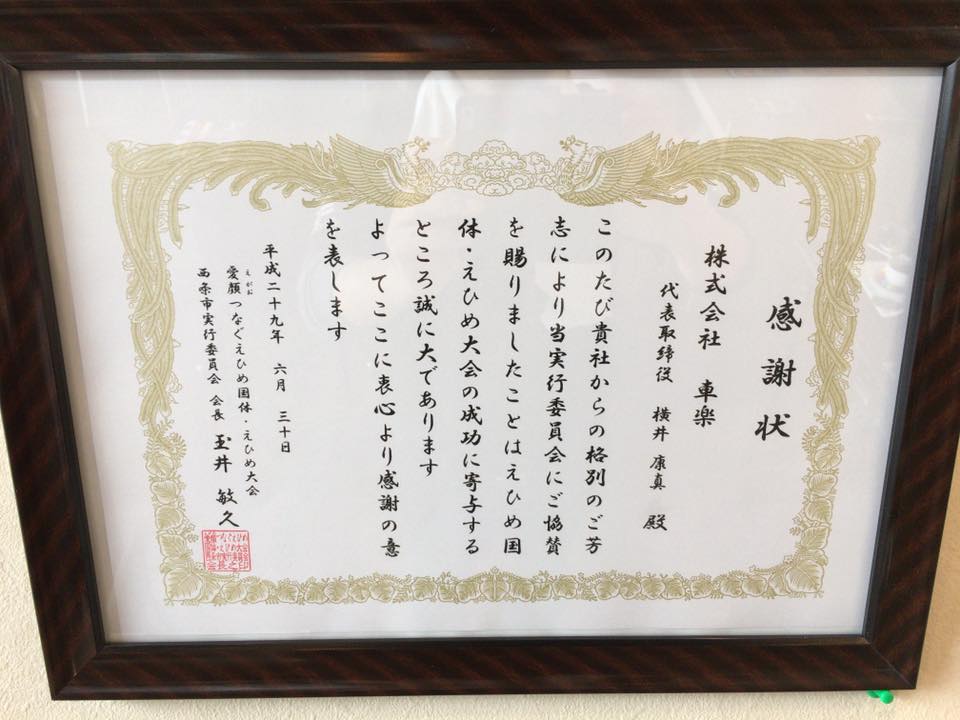 感謝状
株式会社 車楽
代表取締役 横井 康真 殿
このたび貴社からの格別のご芳
志により当実行委員会にご協賛
を賜りましたことはえひめ国
体・えひめ大会の成功に寄与する
ところ誠に大であります
よってここに衷心より感謝の意
を表します
平成二十九年 六月 三十日
愛顔つなぐえひめ国体・えひめ大会
えがお
西条市実行委員会 会長 玉井 敏久